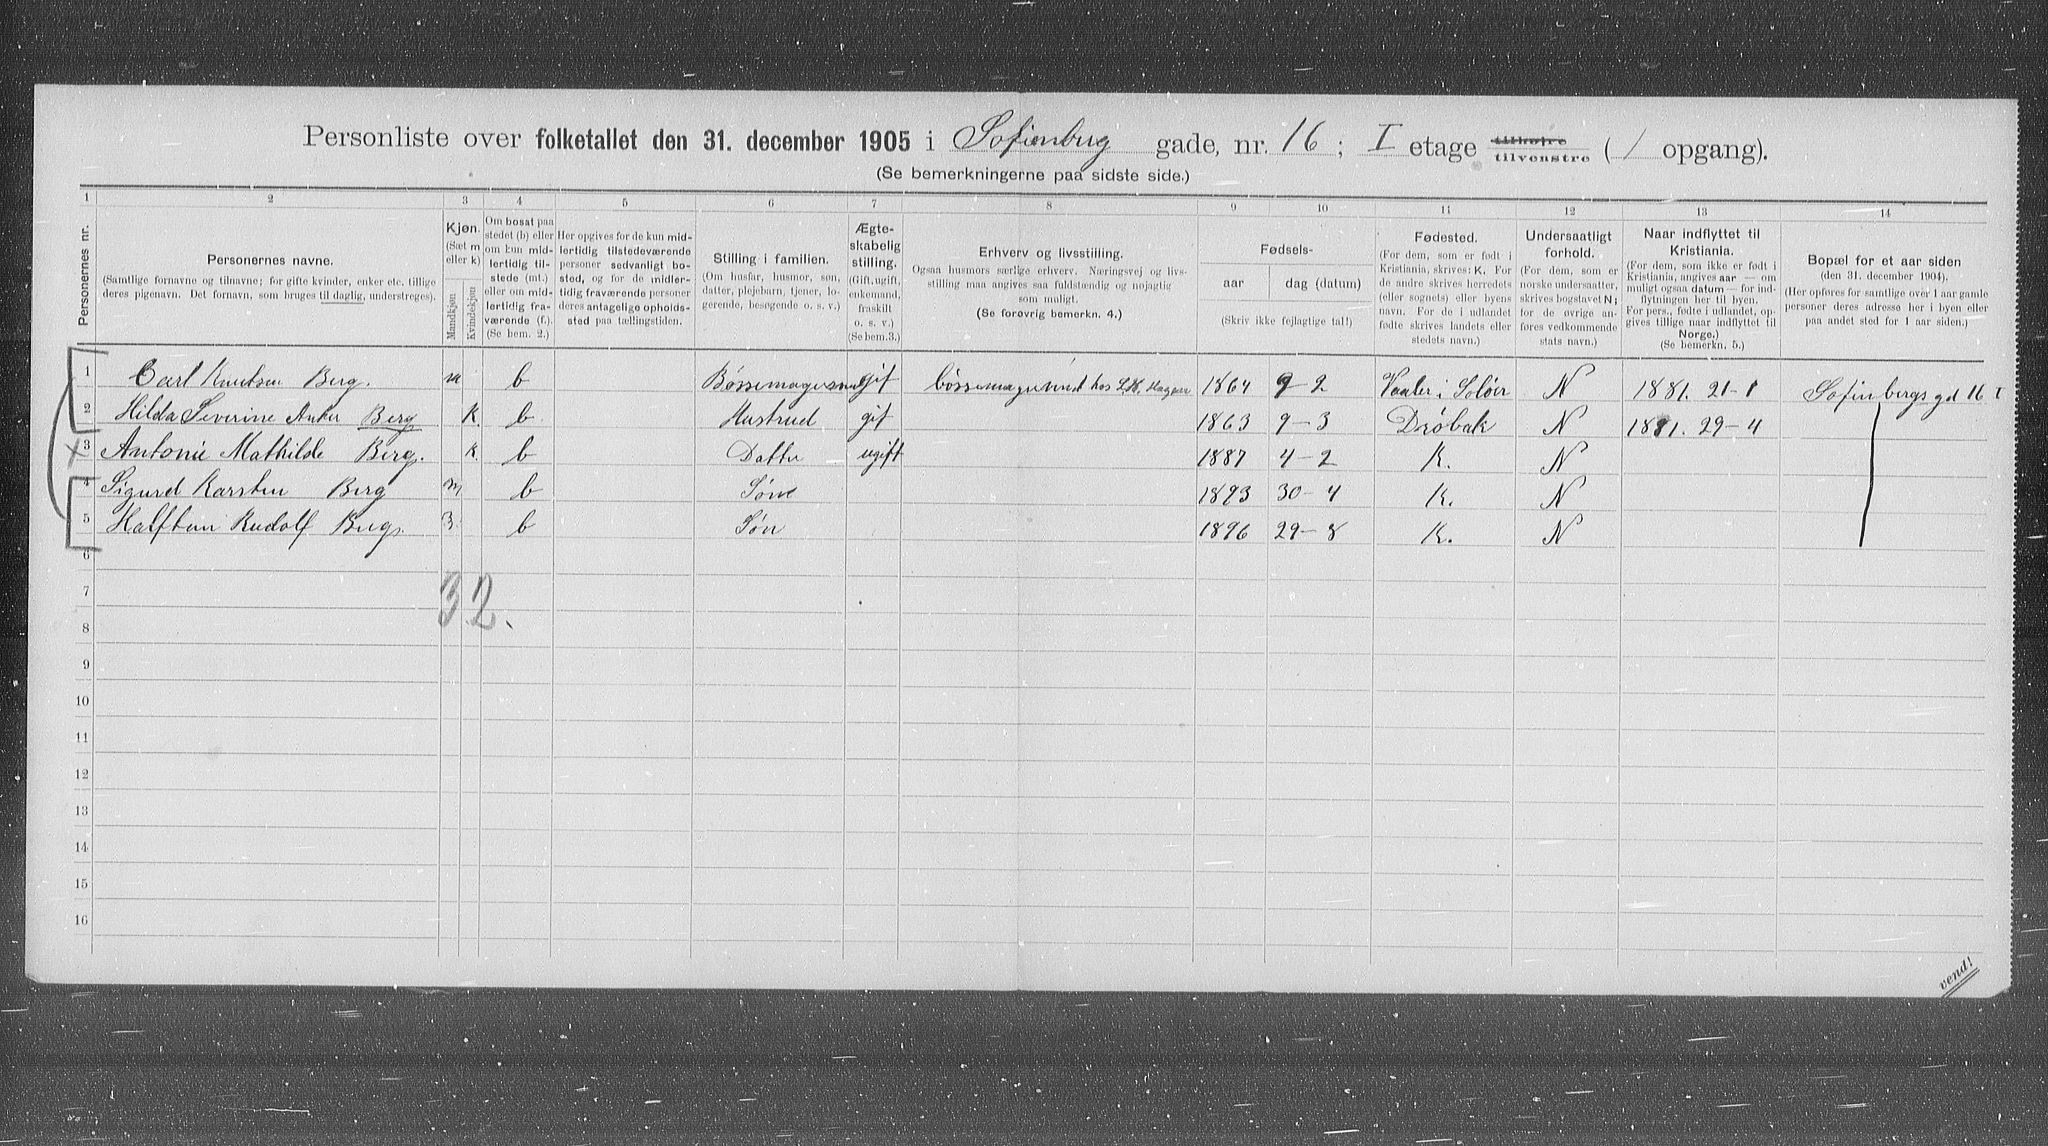 Personliste over folketallet den 31. december 1905 i Sofienberg gade, nr. 16 ; I etage tilhøire tilvenstre ( 1 opgang).
(Se bemerkningerne paa sidste side.)
1 2 3 4 5 6 7 8 9 10 11 12 13 14
Personernes nr.
Personernes navne.
(Samtlige fornavne og tilnavne; for gifte kvinder, enker etc. tillige
deres pigenavn. Det fornavn, som bruges til daglig, understreges).
Kjøn.
(Sæt m
eller k)
Mandkjøn
Kvindekjøn
Om bosat paa
stedet (b) eller
om kun mid-
lertidig til-
stede (mt.)
eller om mid-
lertidig fra-
værende (f.).
(Se bem. 2.)
Her opgives for de kun mid-
lertidig tilstedeværende
personer sedvanligt bo-
sted, og for de midler-
tidig fraværende personer
deres antagelige opholds-
sted paa tællingstiden.
Stilling i familien.
(Om husfar, husmor, søn,
datter, plejebarn, tjener, lo-
gerende, besøgende o. s. v.)
Ægte-
skabelig
stilling.
(Gift, ugift,
enkemand,
fraskilt
o. s. v.)
(Se bem.3.)
Erhverv og livsstilling.
Ogsaa husmors særlige erhverv. Næringsvej og livs-
stilling maa angives saa fuldstændig og nøjagtig
som muligt.
(Se forøvrig bemerkn. 4.)
Fødsels-
aar
dag (datum)
(Skriv ikke fejlagtige tal!)
Fødested.
(For dem, som er født i
Kristiania, skrives: K. For
de andre skrives herredets
(eller sognets) eller byens
navn. For de i udlandet
fødte skrives landets eller
stedets navn.)
Undersaatligt
forhold.
(For dem, som er
norske undersaatter,
skrives bogstavet N;
for de øvrige an-
føres vedkommende
stats navn.)
Naar indflyttet til
Kristiania.
(For dem, som ikke er født i
Kristiania, angives aar — om
muligt ogsaa datum — for ind-
flytningen her til byen.
For pers., fødte i udlandet, op-
gives tillige naar indflyttet til
Norge.)
(Se bemerkn. 5.)
Bopæl for et aar siden
(den 31. december 1904).
(Her opføres for samtlige over 1 aar gamle
personer deres adresse her i byen eller
paa andet sted for 1 aar siden.)
1 Carl Knutsen Berg. m b Bøssemagersvend gift bøssemagersvend hos L.H. Hagen 1864 9-2 Vaaler i Solør N 1881. 21-1 Sofienbergsgd 16 I
2 Hilda Severine Anker Berg K. b Hustrud gif 1863 9-3 Drøbak N 1881. 29-4
3 Antonie Mathilde Berg. K. b Datter ugift 1887 4-2 K. N
4 Sigurd Karsten Berg m b Sønn 1893 30-4 K. N
5 Halftan Rudolf Berg. m b Søn 1896 29-8 K. N
6
7 32.
8
9
10
11
12
13
14
15
16
vend!